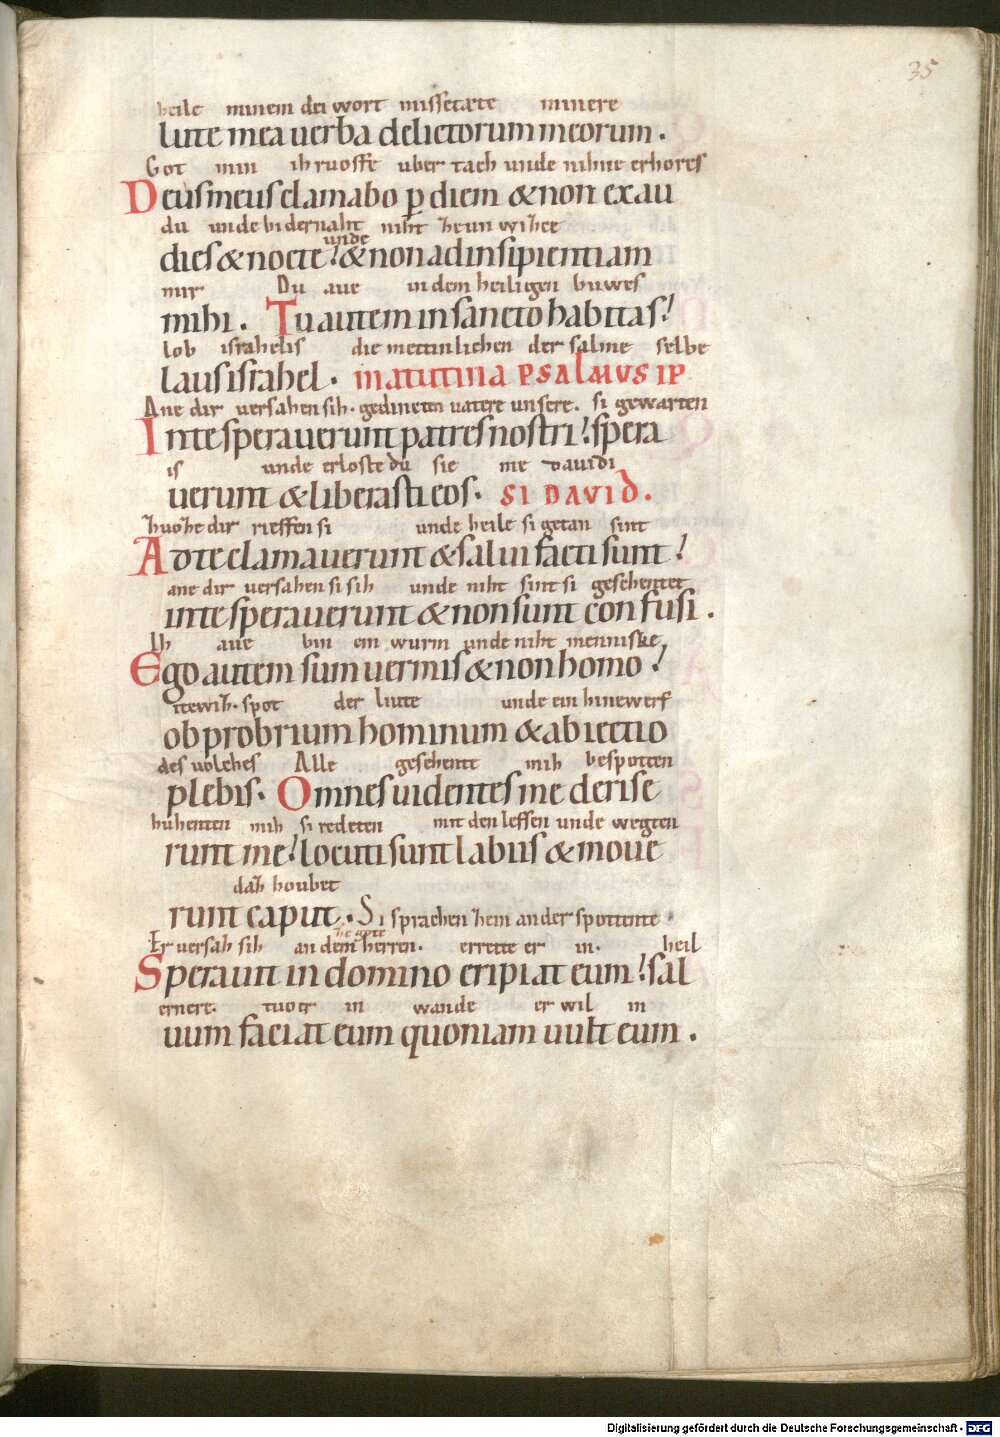 35
heile minem dei wort missetæte minere
lute mea uerba delictorum meorum.
Got min ih ruoffe uber tach unde nihne erhores
Deus meus clamabo p̱ diem & non exau
du unde bi dernaht niht heun wihee
unde
dies & nocte? & non ad insipientiam
mir Du aue in dem heiligen buwes
mihi. Tu autem in sancto habitas!
lob israhelis die mettinlichen der salme selbe
laus israhel. matutina PSALMVS IP
Ane dir versahen sih. gedineten vatere unsere. si gewarten
In te sperauerunt patres nostri! spera
is unde erloste du sie me dauidi
uerunt & liberasti eos. SI DAVID.
zuoze dir rieffen si unde heile si getan sint
Ad te clamauerunt & salui facti sunt!
ane dir versahen si sih unde niht sint si geschentet
in te sperauerunt & non sunt confusi.
Ih aue bin ein wurm unde niht menniske
Ego autem sum uermis & non homo!
ittewih. spot der liute unde ein hinewerf
obprobrium hominum & abiectio
des uolches Alle gesehente mih bespotten
plebis. Omnes uidentes me derise
huhenten mih si redeten mit den leffen unde wegten
runt me! locuti sunt labiis & moue
daz houbet
runt caput. Si sprachen hein ander spottente
Er versah sih an dem herren. errette er in. heil
he gote
Sperauit in domino eripiat eum! sal
ernere. tuo er in wande er wil in
uum faciat eum quoniam uult eum.
Digitalisierung gefördert durch die Deutsche Forschungsgemeinschaft - DFG